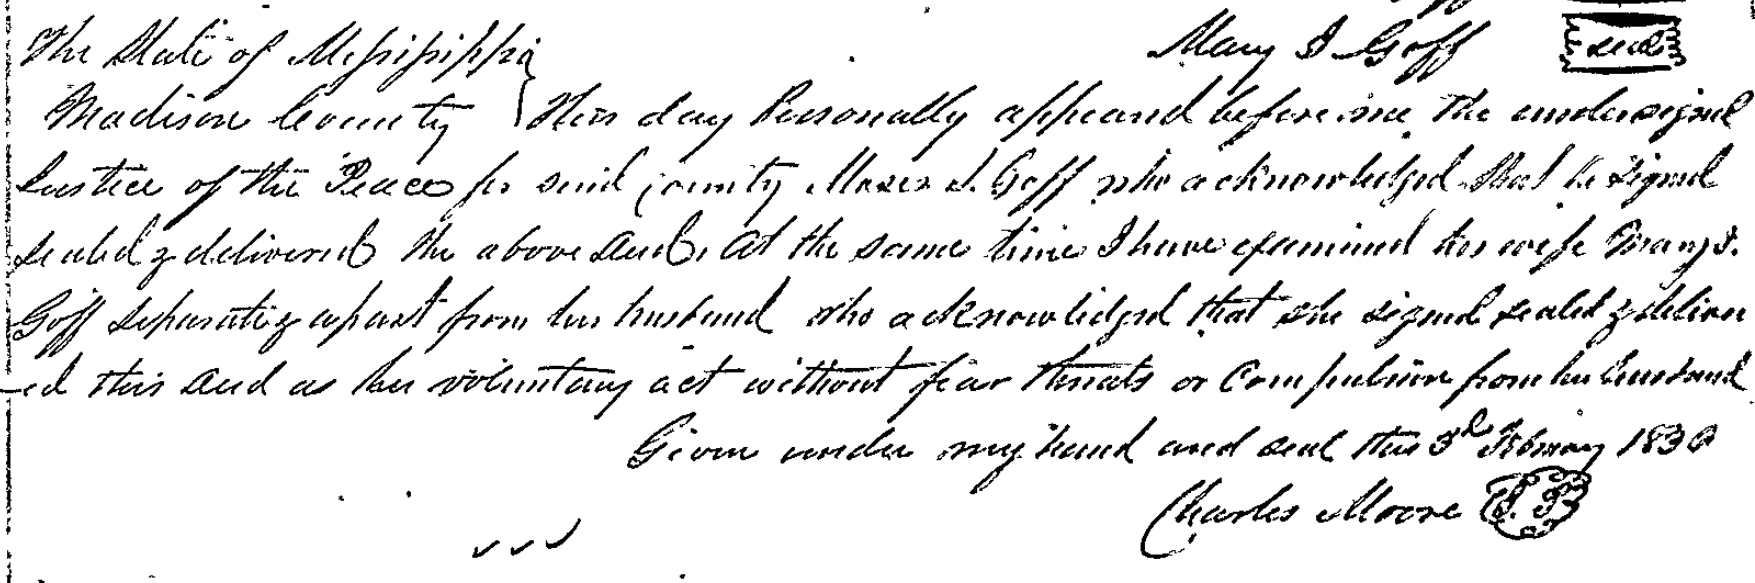 Mary I Goff seal
The State of Mississippi
Madison County } This day Personally appeared before me the undersigned
Justice of the Peace for said county Moses I. Goff who acknowledged that he signed
sealed & delivered the above deed, at the same time I have examined his wife Mary I.
Goff separate & apart from her husband who acknowledged that she signed sealed & deliver
-ed this deed as her voluntary act without fear threats or Compulsion from her husband
Given under my hand and seal this 3d February 1836
Charles Moore J. P.